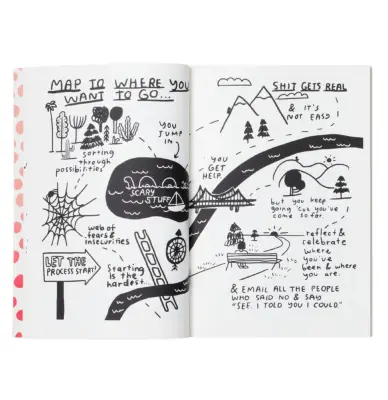 MAP TO WHERE YOU
WANT TO GO...
YOU
JUMP
IN
sorting
through
possibilities
SCARY
STUFF
web of
fears of
insecurities
LET THE
PROCESS START!
Starting
is the
hardest...
SHIT GETS REAL
& IT'S
NOT EASY!
YOU
GET
HELP.
but you keep
going 'cuz you've
come so far.
reflect &
celebrate
where
you've
been & where
you are.
& EMAIL ALL THE PEOPLE
WHO SAID NO & SAY
"SEE, I TOLD YOU I COULD."